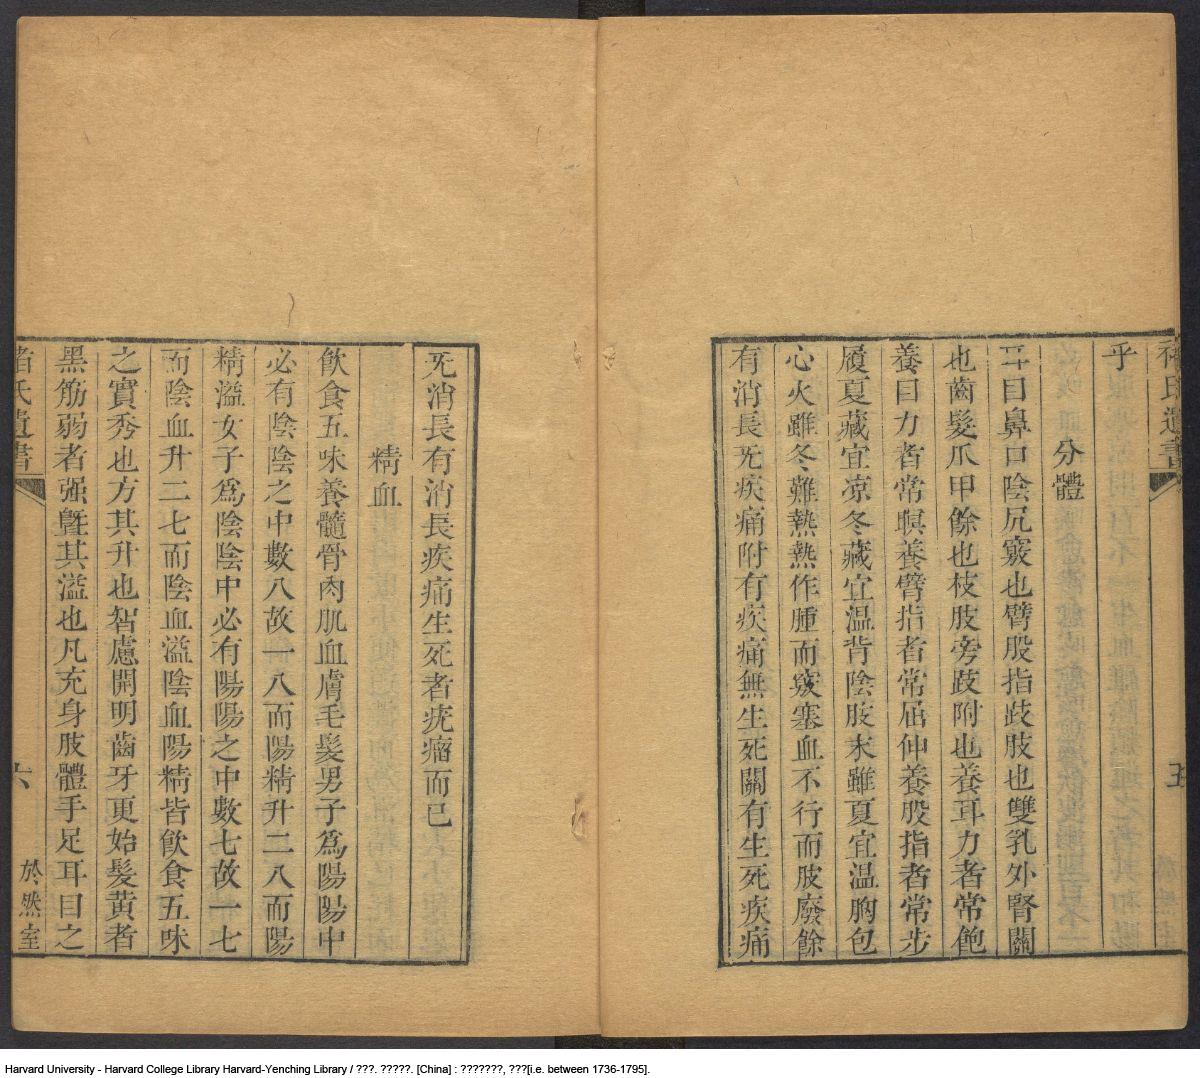 褚氏遺書
五
乎
分體
耳目鼻口陰尻竅也臂股指歧肢也雙乳外腎關
也齒髮爪甲餘也枝肢旁歧附也養耳力者常飽
養目力者常瞑養臂指者常屈伸養股指者常步
履夏藏宜凉冬藏宜温背陰肢末雖夏宜温胸包
心火雖冬難熱熱作腫而竅塞血不行而肢廢餘
有消長旡疾痛附有疾痛無生死關有生死疾痛
旡消長有消長疾痛生死者疣瘤而已
精血
飮食五味養髓骨肉肌血膚毛髮男子爲陽陽中
必有陰陰之中數八故一八而陽精升二八而陽
精溢女子爲陰陰中必有陽陽之中數七故一七
而陰血升二七而陰血溢陰血陽精皆飮食五味
之實秀也方其升也智慮開明齒牙更始髮黄者
黑筋弱者强曁其溢也凡充身肢體手足耳目之
褚氏遺書
六
於然室
Harvard University - Harvard College Library Harvard-Yenching Library / ???. ?????. [China] : ???????, ???[i.e. between 1736-1795].